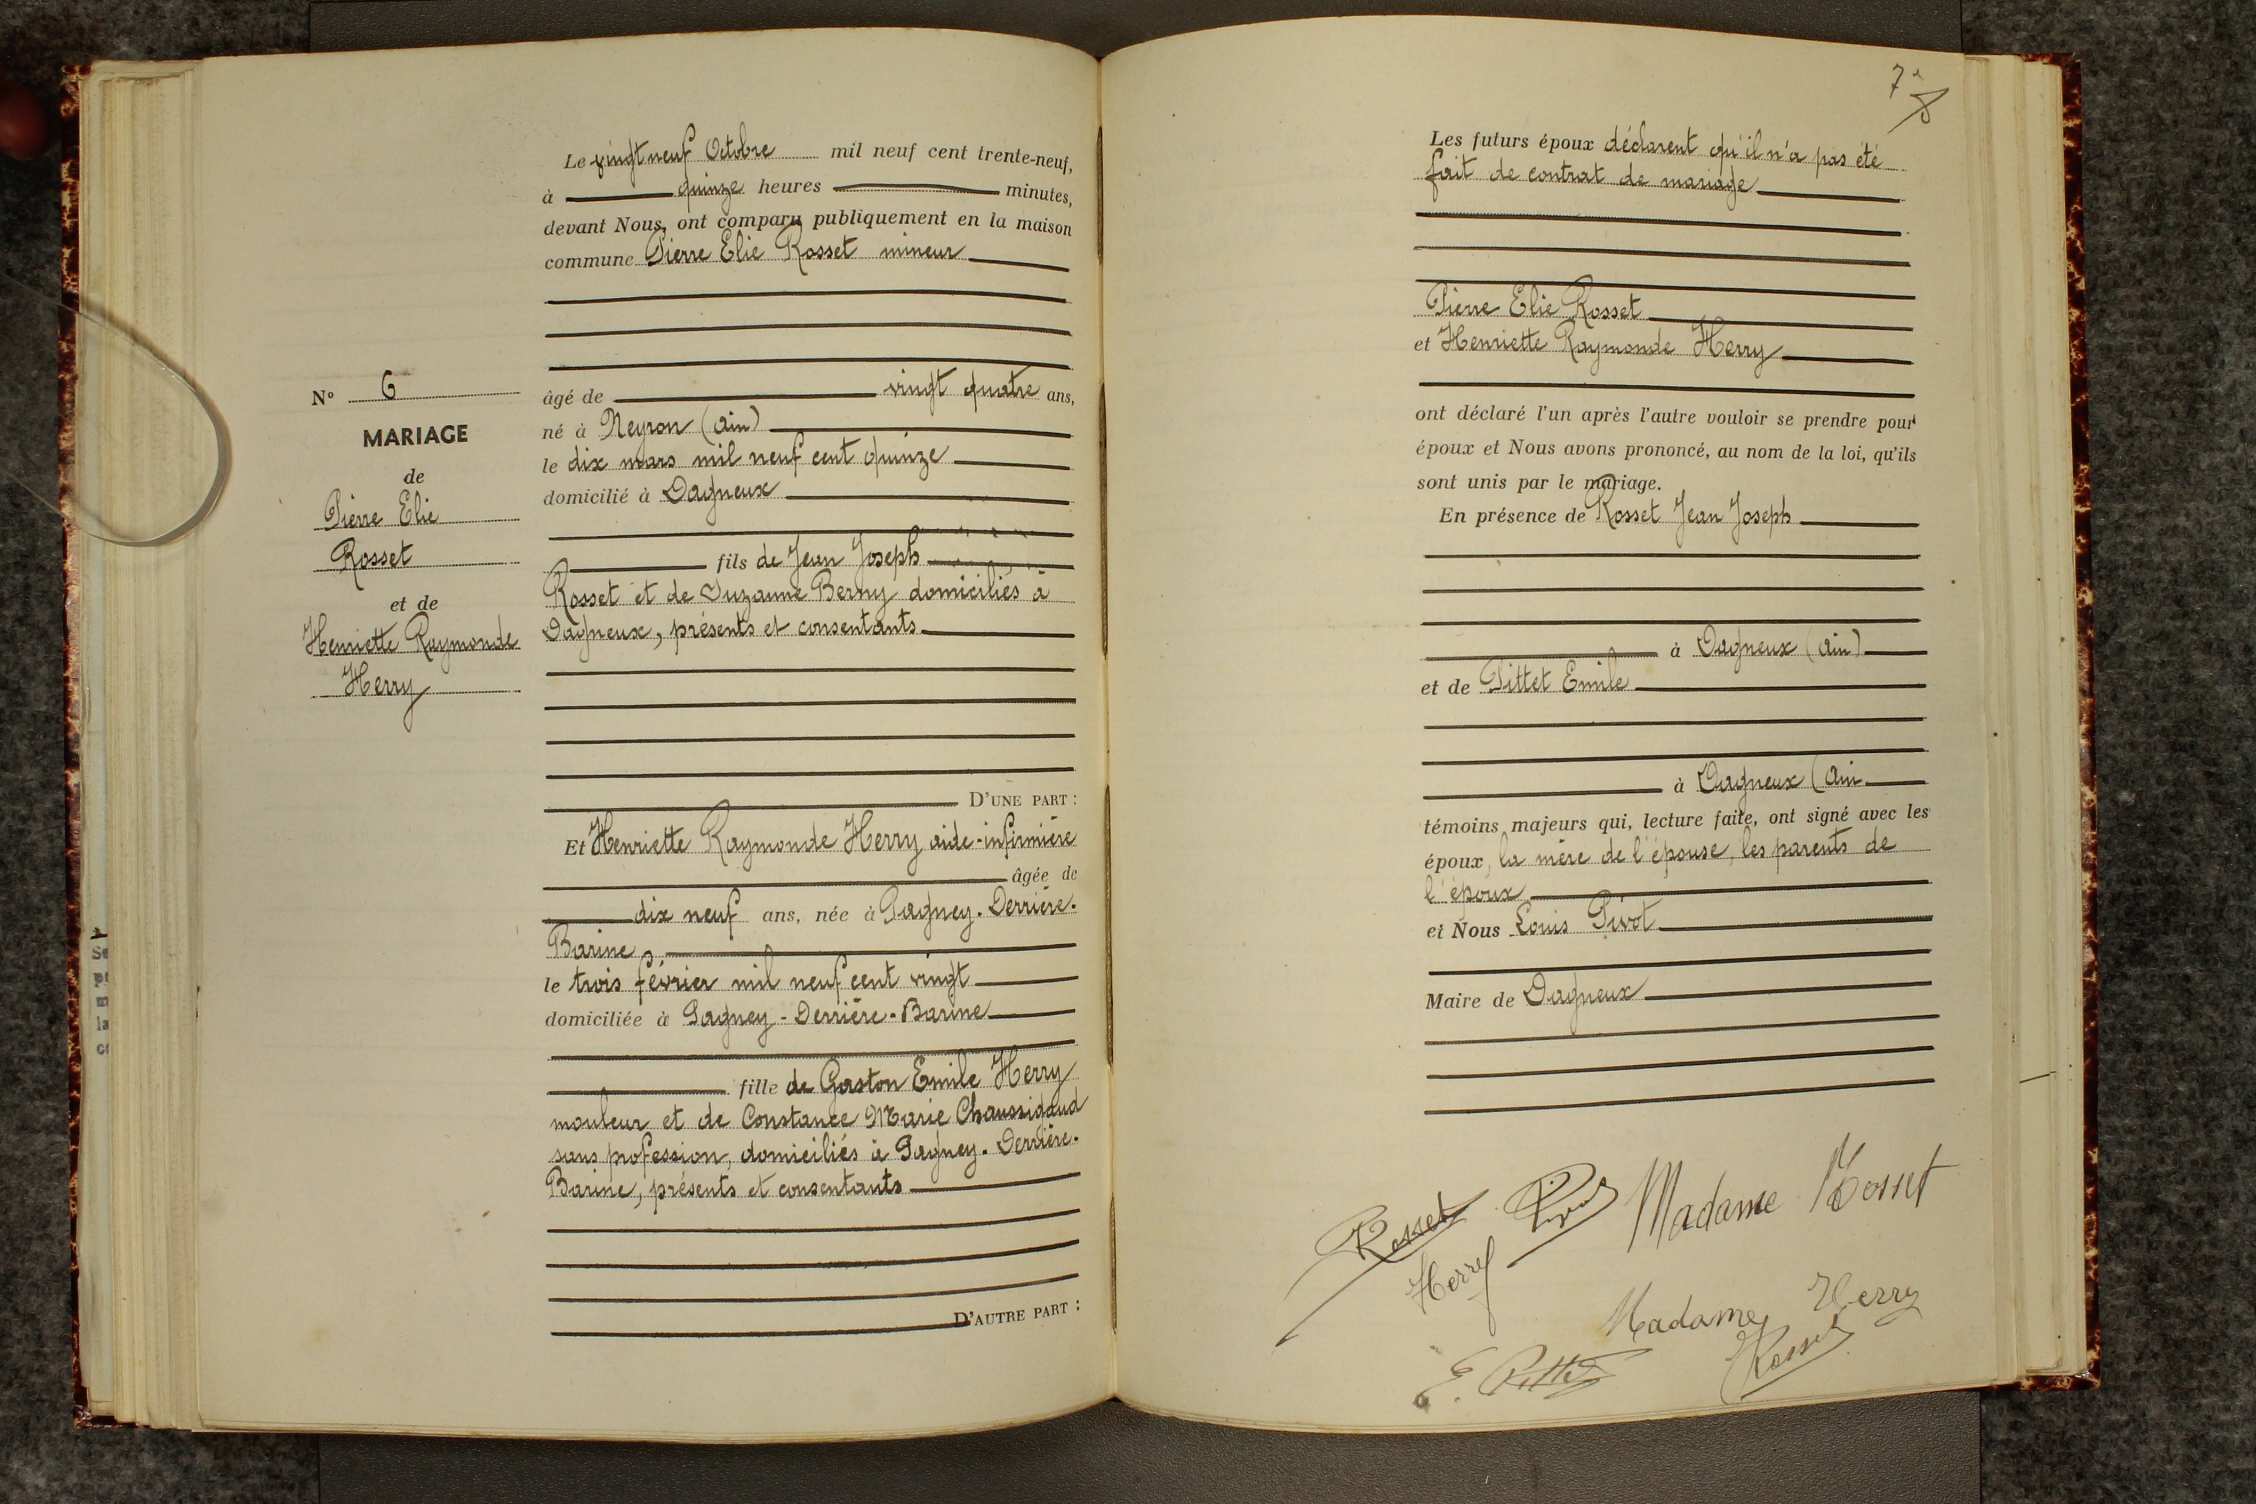 N° 6
MARIAGE
de
Pierre Elie
Rosset
et de
Henriette Raymonde
Herry
Le vingt neuf Octobre mil neuf cent trente-neuf,
à quinze heures minutes,
devant Nous, ont comparu publiquement en la maison
commune Pierre Elie Rosset mineur
âgé de vingt quatre ans,
né à Neyron (Ain)
le dix mars mil neuf cent quinze
domicilié à Dagneux
fils de Jean Joseph
Rosset et de Suzanne Berny domiciliés à
Dagneux, présents et consentants
D'UNE PART :
Et Henriette Raymonde Herry aide-infirmière
âgée de
dix neuf ans, née à Gagney. Derrière.
Barine
le trois février mil neuf cent vingt
domiciliée à Gagney - Derrière - Barine
fille de Gaston Emile Herry
mouleur et de Constance Marie Chaussigaud
sans profession, domiciliés à Gagney. Derrière.
Barine, présents et consentants
D'AUTRE PART :
7
Les futurs époux déclarent qu'il n'a pas été
fait de contrat de mariage
Pierre Elie Rosset
et Henriette Raymonde Herry
ont déclaré l'un après l'autre vouloir se prendre pour
époux et Nous avons prononcé, au nom de la loi, qu'ils
sont unis par le mariage.
En présence de Rosset Jean Joseph
à Dagneux (Ain)
et de Pittet Emile
à Dagneux (Ain
témoins majeurs qui, lecture faite, ont signé avec les
époux, la mère de l'épouse, les parents de
l'époux
et Nous Louis Pivot
Maire de Dagneux
Rosset Pivot Madame Rosset
Herry
Madame Herry
E. Pittet Rosset